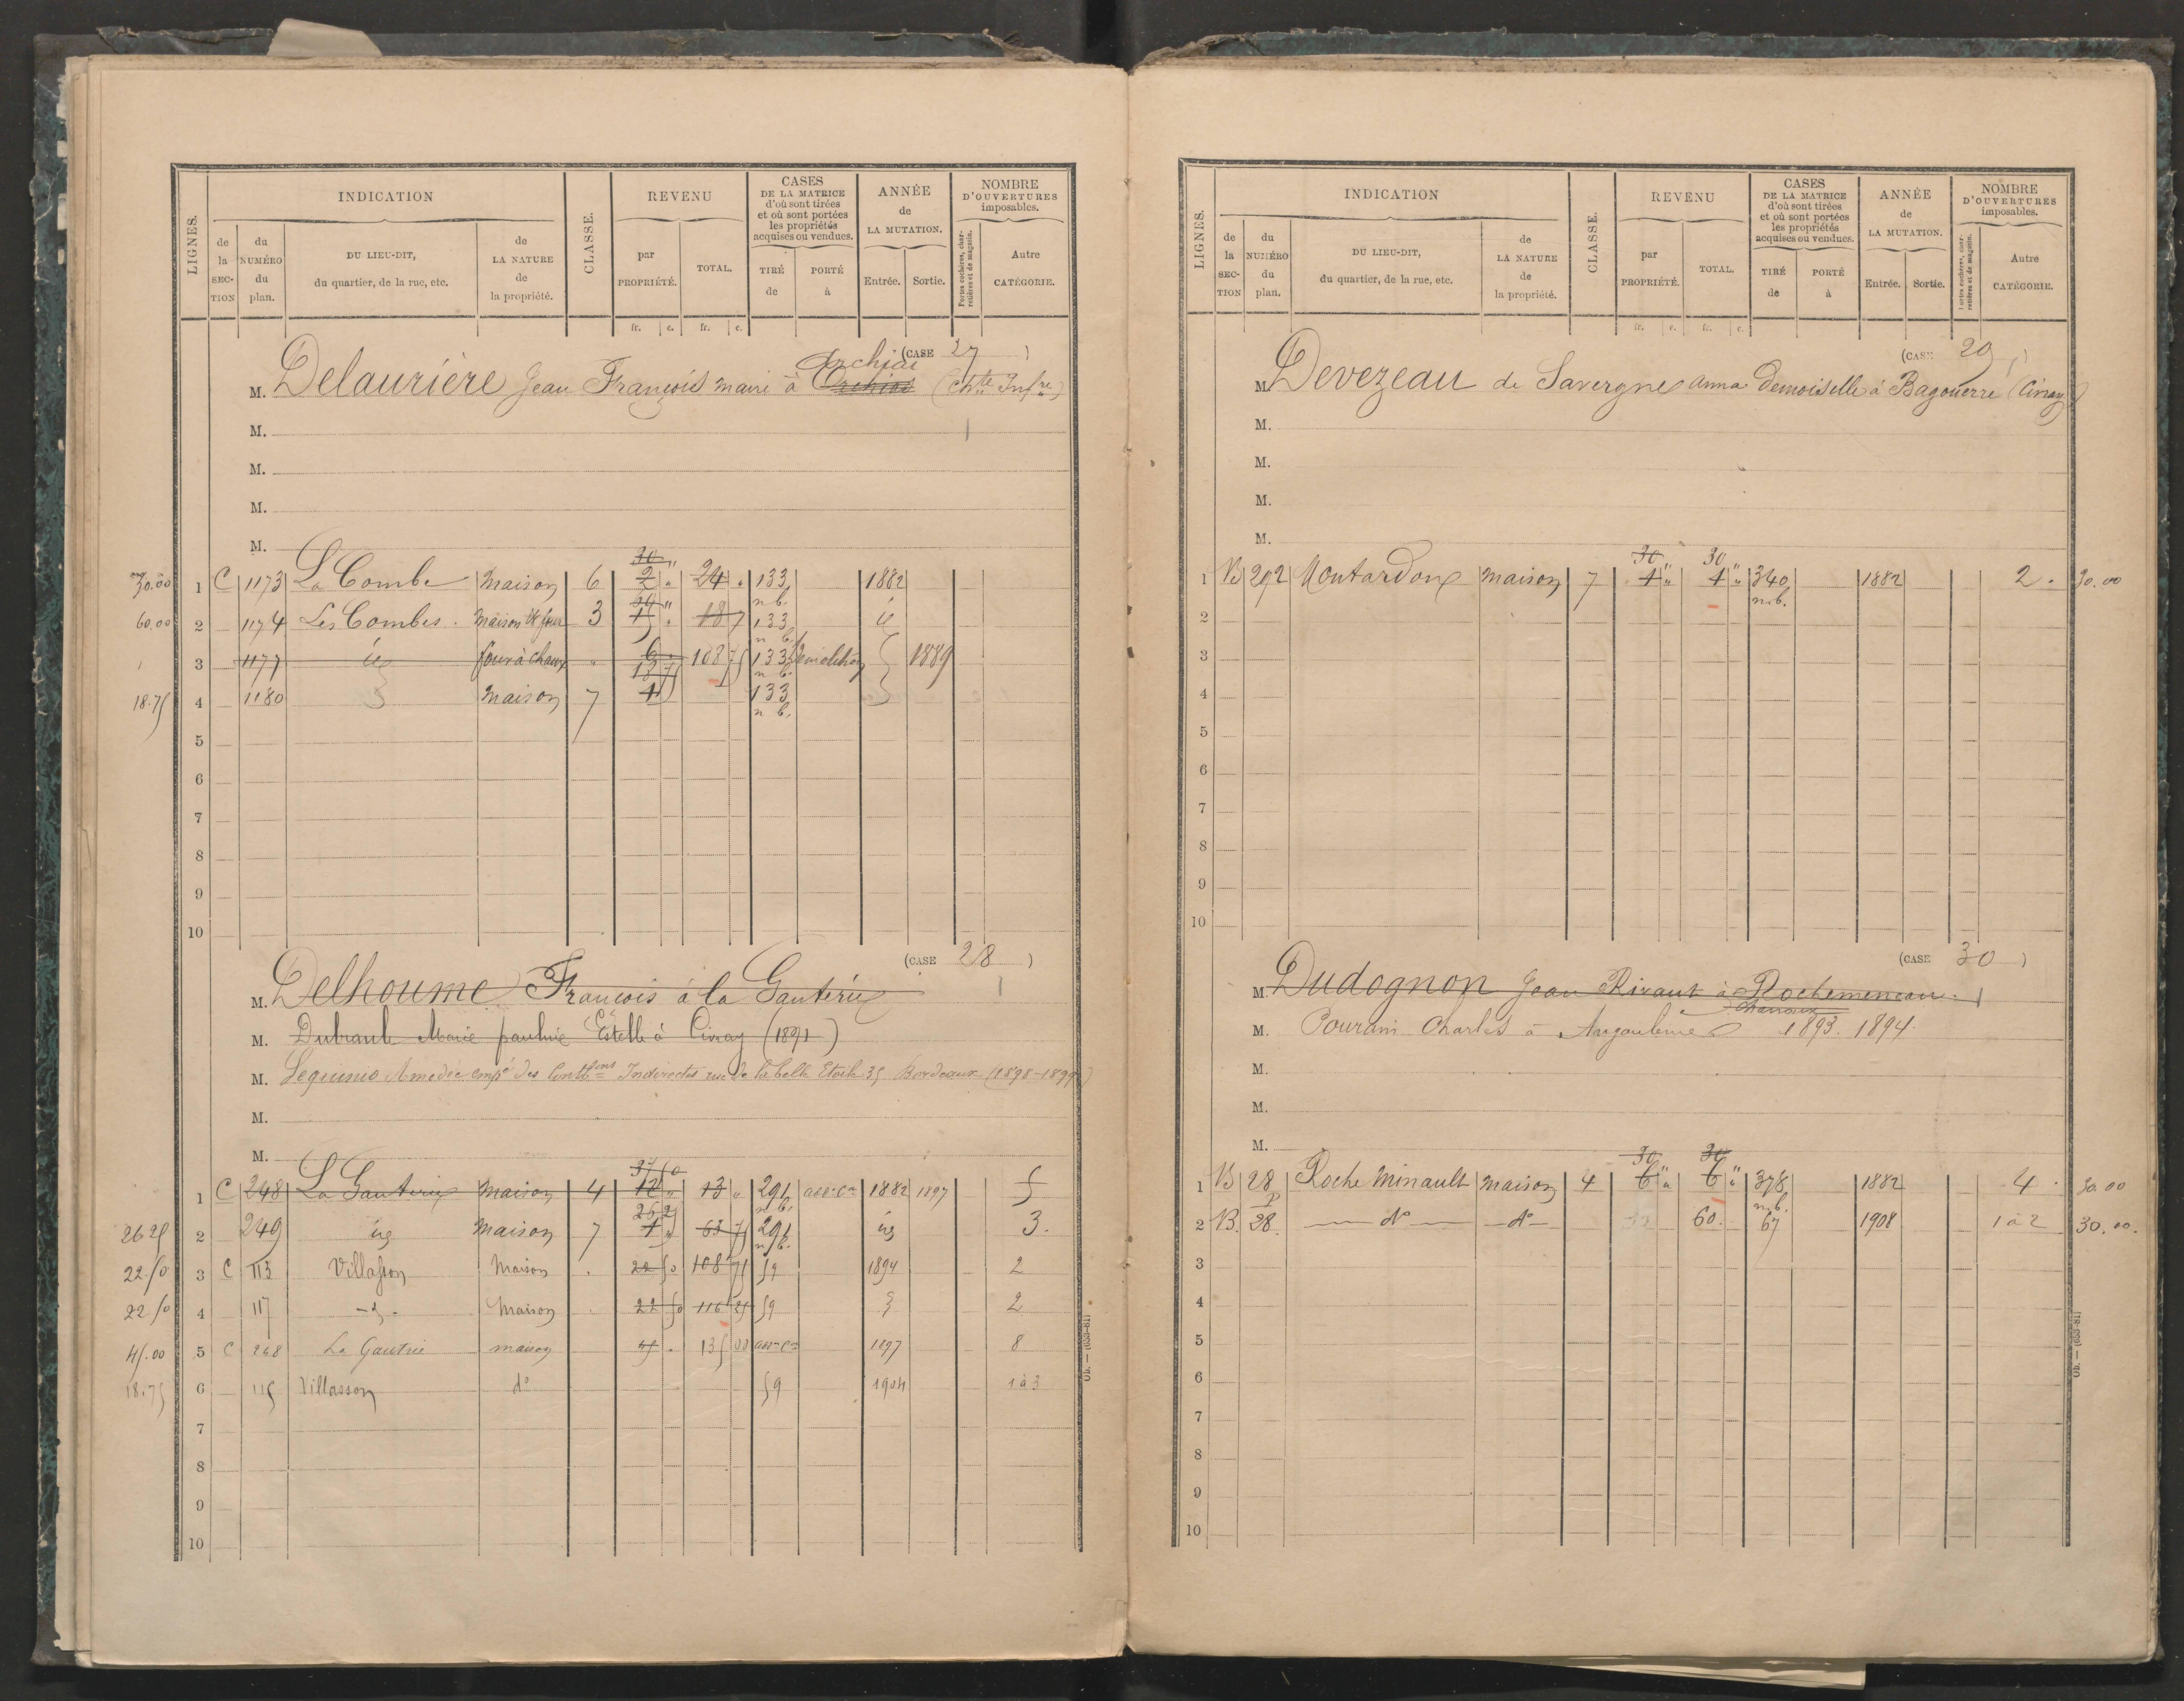 LIGNES.
INDICATION
CLASSE.
REVENU
CASES
DE LA MATRICE
d'où sont tirées
et où sont portées
les propriétés
acquises ou vendues.
ANNÉE
de
LA MUTATION.
NOMBRE
D'OUVERTURES
imposables.
de la SECTION
du NUMÉRO du plan.
DU LIEU-DIT,
du quartier, de la rue, etc.
de LA NATURE de la propriété.
par PROPRIÉTÉ.
TOTAL.
TIRÉ de
PORTÉ à
Entrée.
Sortie.
Portes cochères, charretières et de magasin.
Autre CATÉGORIE.
fr. c. fr. c.
(CASE 27 )
Archiac
M. Delaurière Jean François maire à Orchiac (Chte Infre)
M.
M.
M.
M.
30.00 1 C 1173 La Combe Maison 6 30 " 2 " 24 " 133 n.b. 1882
60.00 2 1174 Les Combes. Maison 3 133 n b. id
3 1177 id four à chaux " 6 " 108 75 133 n b. Démolition 1889
18.75 4 1180 Maison 7 18 75 4 133 n b.
5
6
7
8
9
10
(CASE 28 )
M. Delhoume François à la Gauterie
M. Dubrault Marie pauline Estelle à Civray (1891)
M. Legrumo Amedée empé des Contbons Indirectes rue de la belle Etoile 35 Bordeaux (1898-1899)
M.
M.
1 C 248 La Gauterie Maison 4 37 50 12 " 13 " 291 n.b. 1882 1897 5
26 25 2 249 id Maison 7 26 25 4 " 63 75 291 n b. id 3.
22.50 3 C 113 Villasson Maison . 22 50 108 75 59 1894 2
22 50 4 117 -d- Maison . 22 50 116 25 59 2
45.00 5 C 268 La Gautrie maison 45 . 135 00 1897 8
18.75 6 115 Villasson do 59 1904 1 à 3
7
8
9
10
LIGNES.
INDICATION
CLASSE.
REVENU
CASES
DE LA MATRICE
d'où sont tirées
et où sont portées
les propriétés
acquises ou vendues.
ANNÉE
de
LA MUTATION.
NOMBRE
D'OUVERTURES
imposables.
de la SECTION
du NUMÉRO du plan.
DU LIEU-DIT,
du quartier, de la rue, etc.
de LA NATURE de la propriété.
par PROPRIÉTÉ.
TOTAL.
TIRÉ de
PORTÉ à
Entrée.
Sortie.
Portes cochères, charretières et de magasin.
Autre CATÉGORIE.
fr. c. fr. c.
(CASE 29 )
M. Devezeau de Lavergne Anna Demoiselle à Bagouerre (Civray)
M.
M.
M.
M.
1 B 292 Montardon maison 7 30 " 4 " 30 " 4 " 340 n.b. 1882 2. 30.00
2
3
4
5
6
7
8
9
10
(CASE 30 )
M. Dudognon Jean Rivaux à Rochemeneau.
Charroux
M. Pourain Charles à Angoulême 1893. 1894.
M.
M.
M.
1 B 28 p Roche Minault maison 4 30 " 6 " 30 " 6 " 378 n.b. 1882 4. 30.00
2 B. 28. do do 60. 67 1908 1 à 2 30.00.
3
4
5
6
7
8
9
10